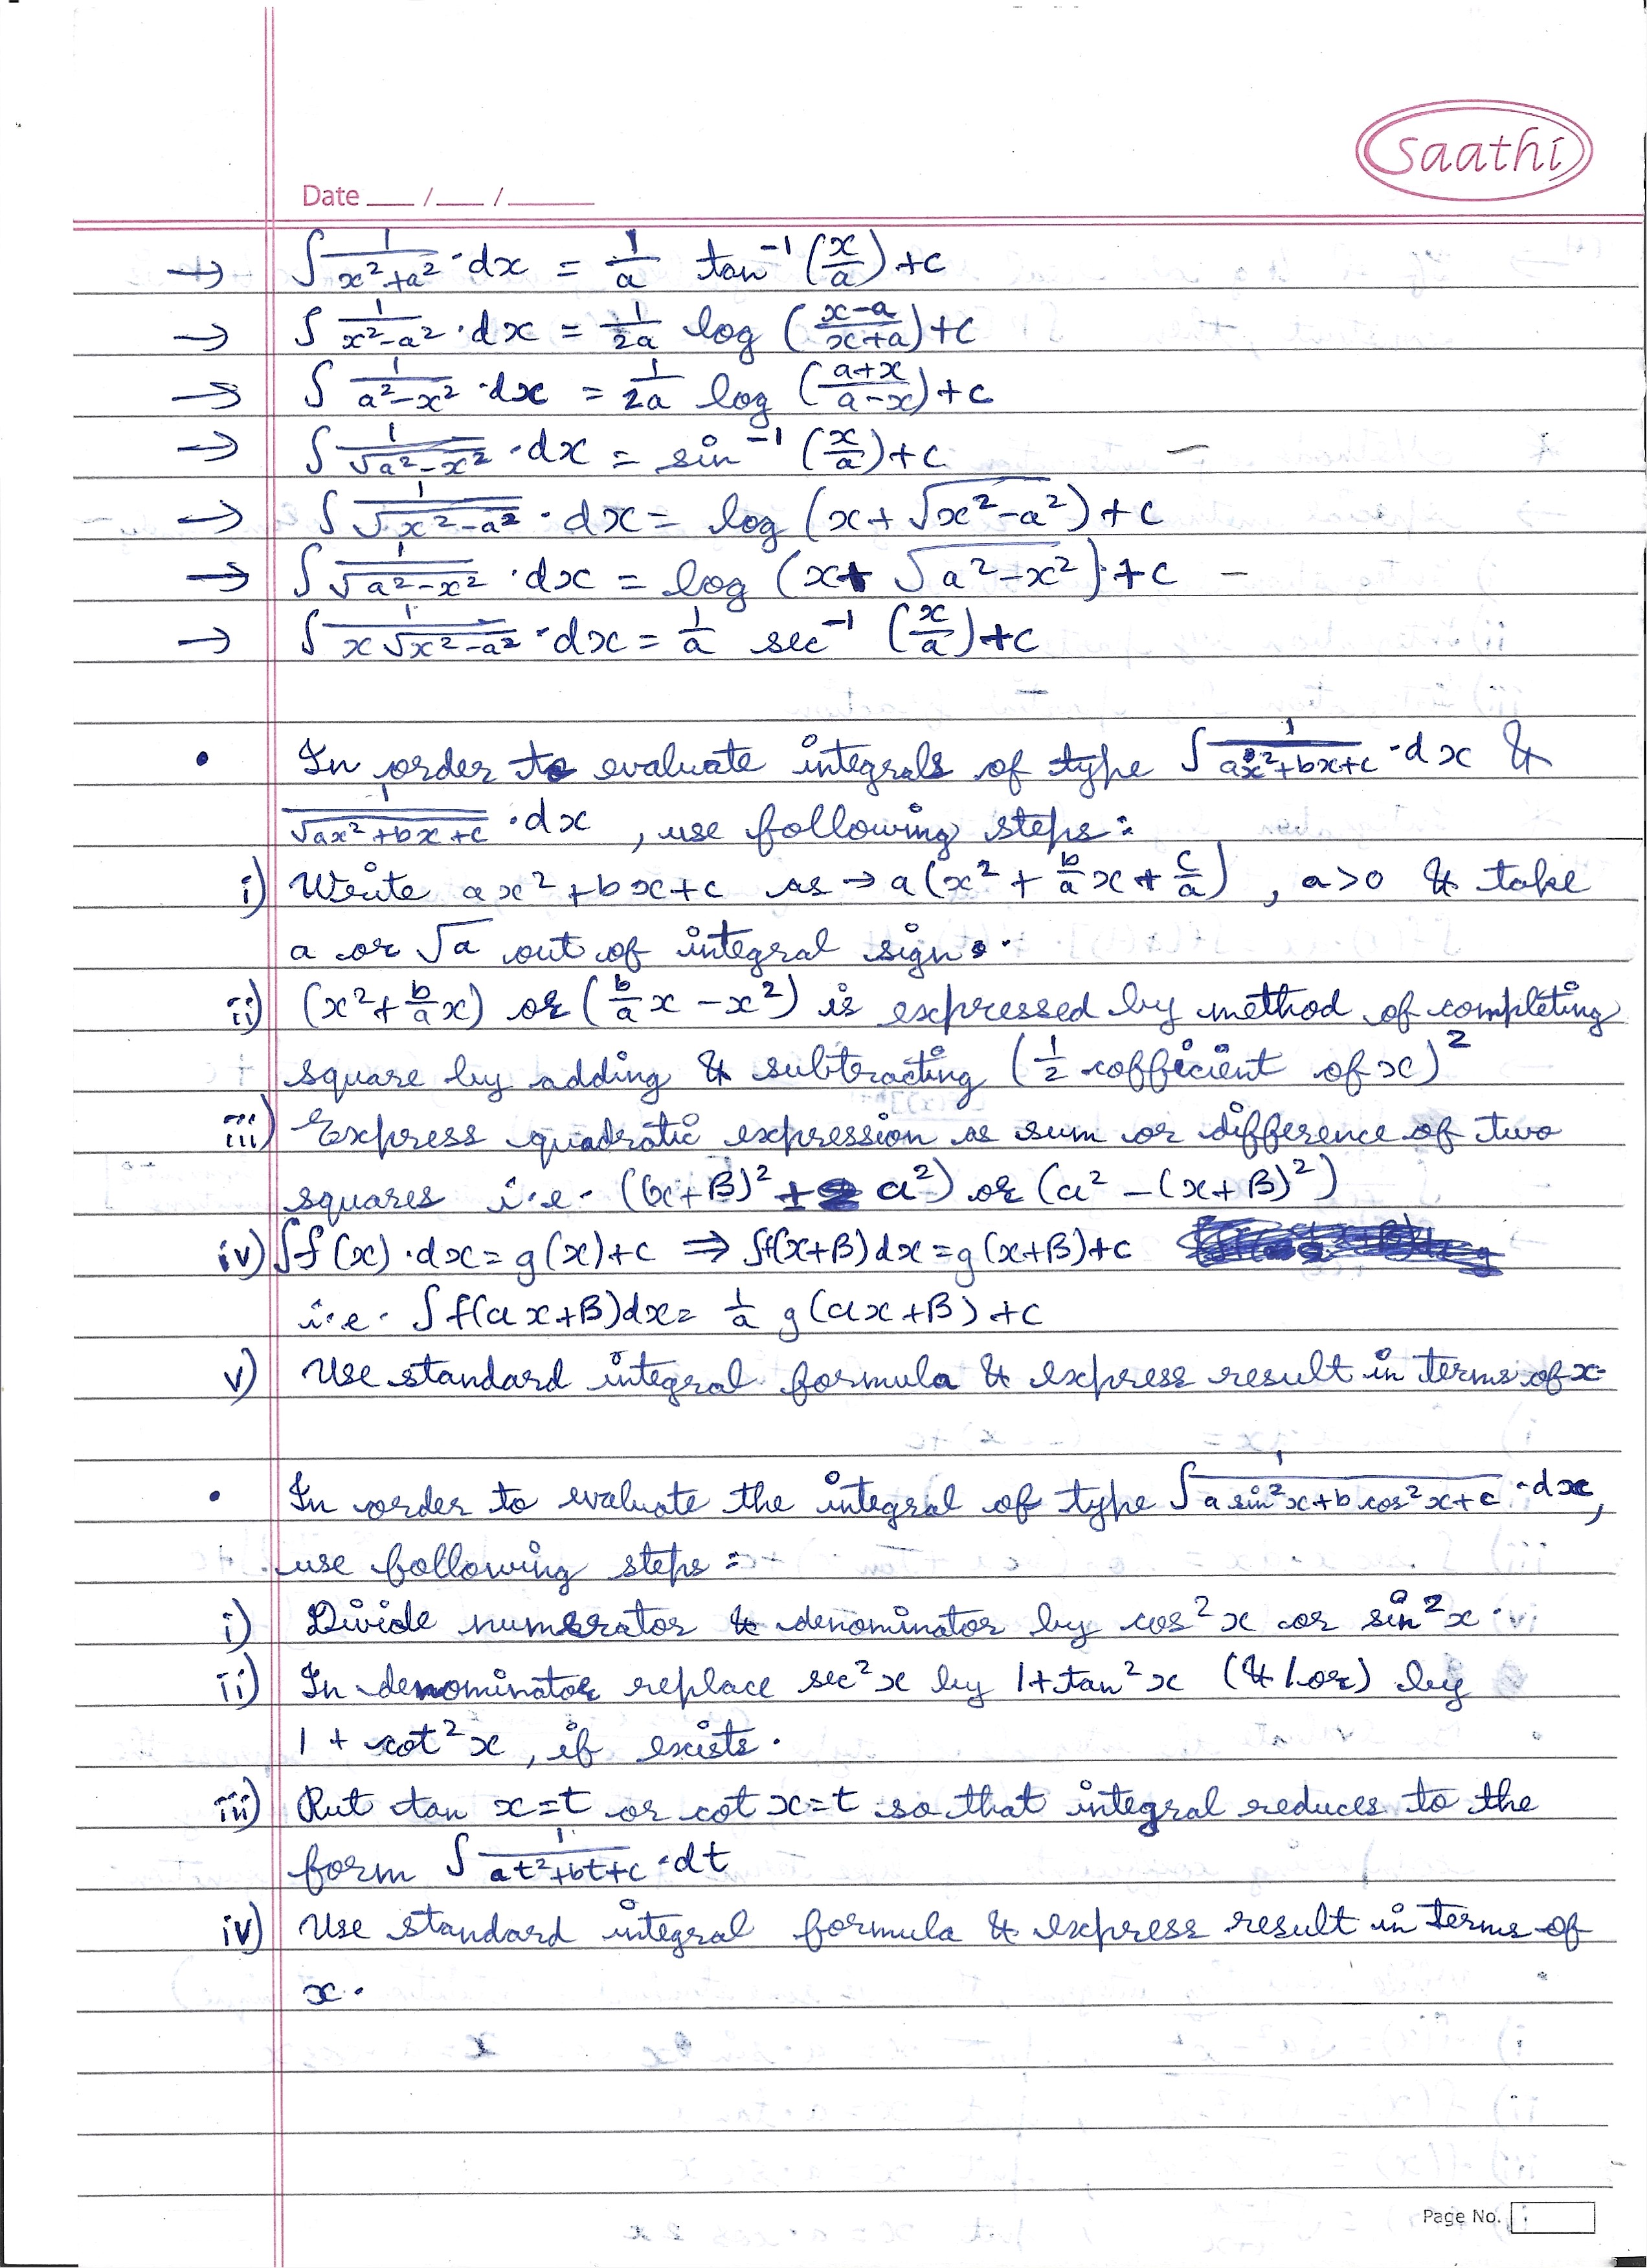 Saathi
Date ___ / ___ / ______
→ ∫ 1/(x²+a²) · dx = 1/a tan⁻¹ (x/a) + c
→ ∫ 1/(x²-a²) · dx = 1/2a log ((x-a)/(x+a)) + c
→ ∫ 1/(a²-x²) · dx = 1/2a log ((a+x)/(a-x)) + c
→ ∫ 1/√(a²-x²) · dx = sin⁻¹ (x/a) + c –
→ ∫ 1/√(x²-a²) · dx = log (x + √(x²-a²)) + c
→ ∫ 1/√(a²-x²) · dx = log (x + √(a²-x²)) + c –
→ ∫ 1/(x√(x²-a²)) · dx = 1/a sec⁻¹ (x/a) + c
• In order to evaluate integrals of type ∫ 1/(ax²+bx+c) · dx &
1/√(ax²+bx+c) · dx , use following steps:
i) Write ax²+bx+c as → a(x² + b/a x + c/a) , a>0 & take
a or √a out of integral sign.
ii) (x² + b/a x) or (b/a x - x²) is expressed by method of completing
square by adding & subtracting (1/2 cofficient of x)²
iii) Express quadratic expression as sum or difference of two
squares i.e. ((x+β)² ± α²) or (α² - (x+β)²)
iv) ∫f(x) · dx = g(x)+c ⇒ ∫f(x+β) dx = g(x+β)+c
i.e. ∫ f(αx+β)dx = 1/α g(αx+β) + c
v) Use standard integral formula & express result in terms of x.
• In order to evaluate the integral of type ∫ 1/(a sin²x+b cos²x+c) · dx,
use following steps :
i) Divide numerator & denominator by cos²x or sin²x.
ii) In denominator replace sec²x by 1+tan²x (& / or) by
1 + cot²x , if exists.
iii) Put tan x=t or cot x=t so that integral reduces to the
form ∫ 1/(at²+bt+c) · dt
iv) Use standard integral formula & express result in terms of
x.
Page No.